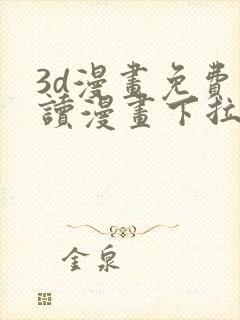 3d漫畫免費
讀漫畫下拉
金泉